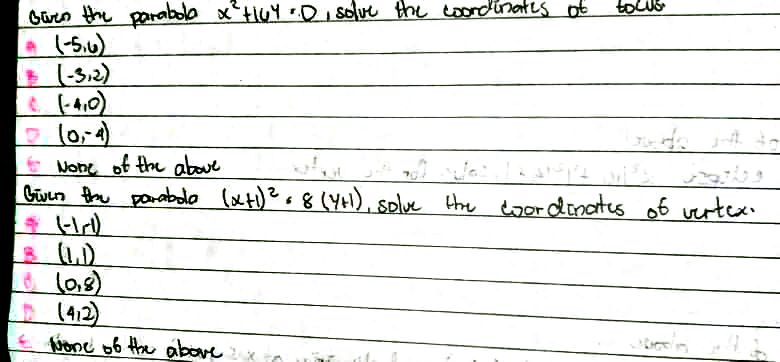 Given the parabola x²+16y=0, solve the coordinates of focus
A (-5,6)
B (-3,2)
C (-4,0)
D (0,-4)
E None of the above
Given the parabola (x+1)² = 8(y+1), solve the coordinates of vertex.
A (-1,-1)
B (1,1)
C (0,8)
D (4,2)
E None of the above